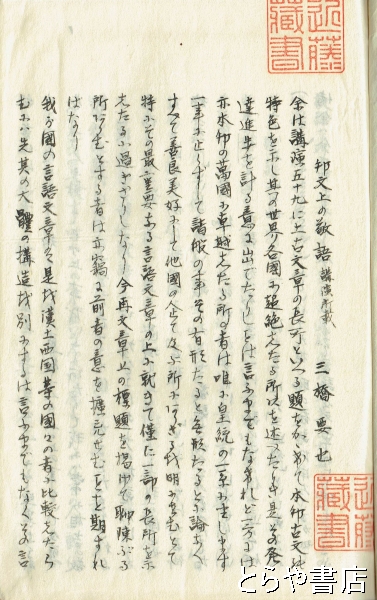 近藤
藏書
邦文上の敬語 講演所載
三橋要也
余は講演五十九に上古文章の長所といへる題をかゝげて本邦古文の
特色を示し其の世界各国に超絶したる所以を述べたりき是その発
達進歩を計る意に出でたりしとは言ふまでもなけれど一方には
亦本邦の萬國に卓越したる所の者は唯に皇統の一系に在します
一事に止らずして諸般の事その有形たると無形たるとに論なく
すべて善良美好にして他國の企て及ぶ所にあらざる
特にその最重要なる言語文章の上に就きて僅に一部の長所を示
したるに過ぎざりしなり今再文章上の標題を掲げて聊陳ぶる
所あらむとする者は亦窃に前者の意を擴充せむことを期すれ
ばなり
我が國の言語文章を是を漢土西国等の国々の者に比較したら
むには先其の大體の構造を別にするは言ふまでもなくその言
近藤
藏書
とらや書店